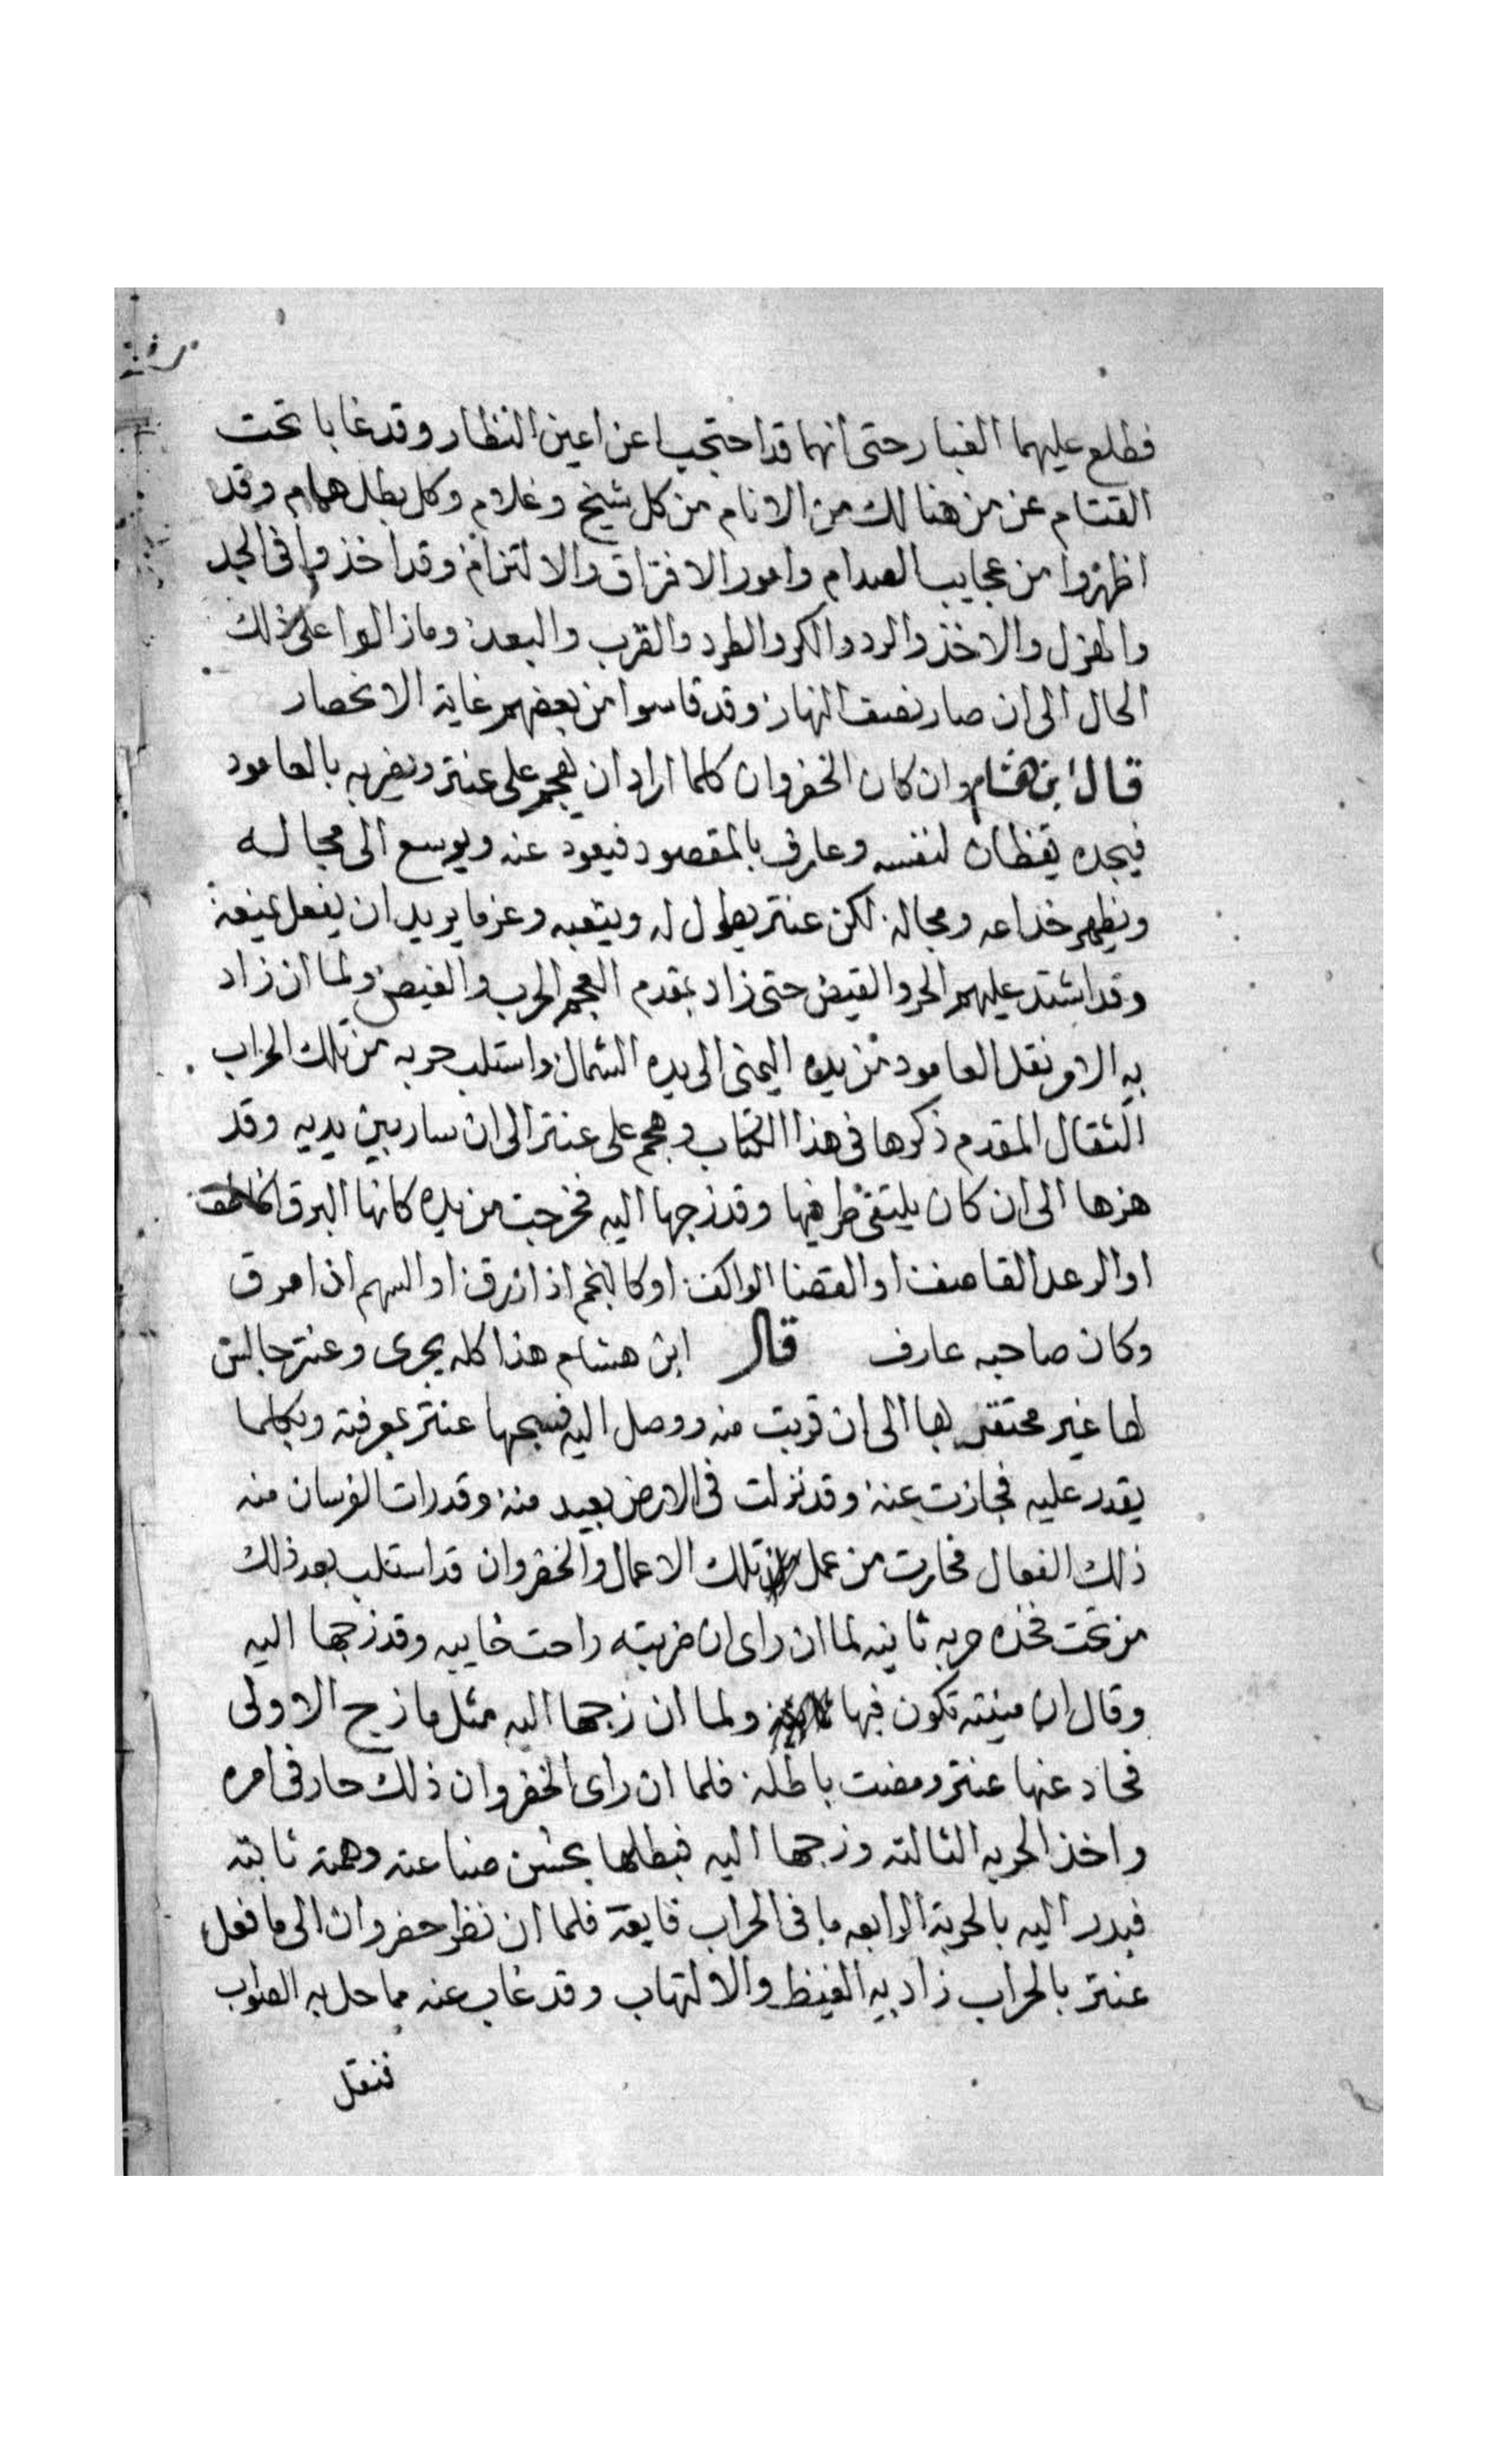 فطلع عليهما الغبار حتى انهما قد احتجبا عن اعين النظار وقد غابا تحت
القتام عن من هنالك من الانام من كل شيخ وغلام وكل بطل همام وقد
اظهروا من عجايب الصدام وامور الافتراق والالتزام وقد اخذوا فى الجد
والهزل والاخذ والرد والكر والطرد والقرب والبعد وما زالوا على ذلك
الحال الى ان صار نصف النهار وقد قاسوا من بعضهم غاية الانحصار
قال ابن هشام وان كان الخفروان كلما اراد ان يهجم على عنتر ويضربه بالعامود
فيجده يقظان لنفسه وعارف بالمقصود فيعود عنه ويوسع الى مجاله
ويظهر خداعه ومجاله لكن عنتر يطول له ويتعبه وعن ما يريد ان يفعل يمنعه
وقد اشتد عليهم الحر والقيض حتى زاد بمقدم العجم الحرب والغيض ولما ان زاد
به الامر نقل العامود من يده اليمنى الى يده الشمال واستلب حربه من تلك الحراب
الثقال المقدم ذكرها فى هذا الكتاب وهجم على عنتر الى ان سار بين يديه وقد
هزها الى ان كان يلتقى طرفيها وقد زجها اليه فخرجت من يده كانها البرق الخاطف
او الرعد القاصف او القضا الواكف او كالنجم اذا زرق او السهم اذا مرق
وكان صاحبه عارف قال ابن هشام هذا كله يجرى وعنتر جالس
لها غير محتقر بها الى ان قربت منه ووصل اليه عنتر بمعرفته وبكلما
يقدر عليه فجازت عنه وقد نزلت فى الارض بعيد منه وقد رات الفرسان منه
ذلك الفعال فحارت من عمل تلك الاعمال والخفروان قد استلب بعد ذلك
من تحت فخذه حربه ثانيه لما ان راى ان ضربته راحت خايبه وقد زجها اليه
وقال ان منيته تكون فيها ولما ان زجها اليه مثل ما زج الاولى
فحاد عنها عنتر ومضت باطله فلما ان راى الخفروان ذلك حار فى امره
واخذ الحربه الثالثه وزجها اليه فبطلها بحسن صناعته وهمه ثابته
فبدر اليه بالحربة الرابعه ما فى الحراب فايقة فلما ان نظر خفروان الى ما فعل
عنتر بالحراب زاد به الغيظ والالتهاب وقد غاب عنه مما حل به الصواب
فنقل